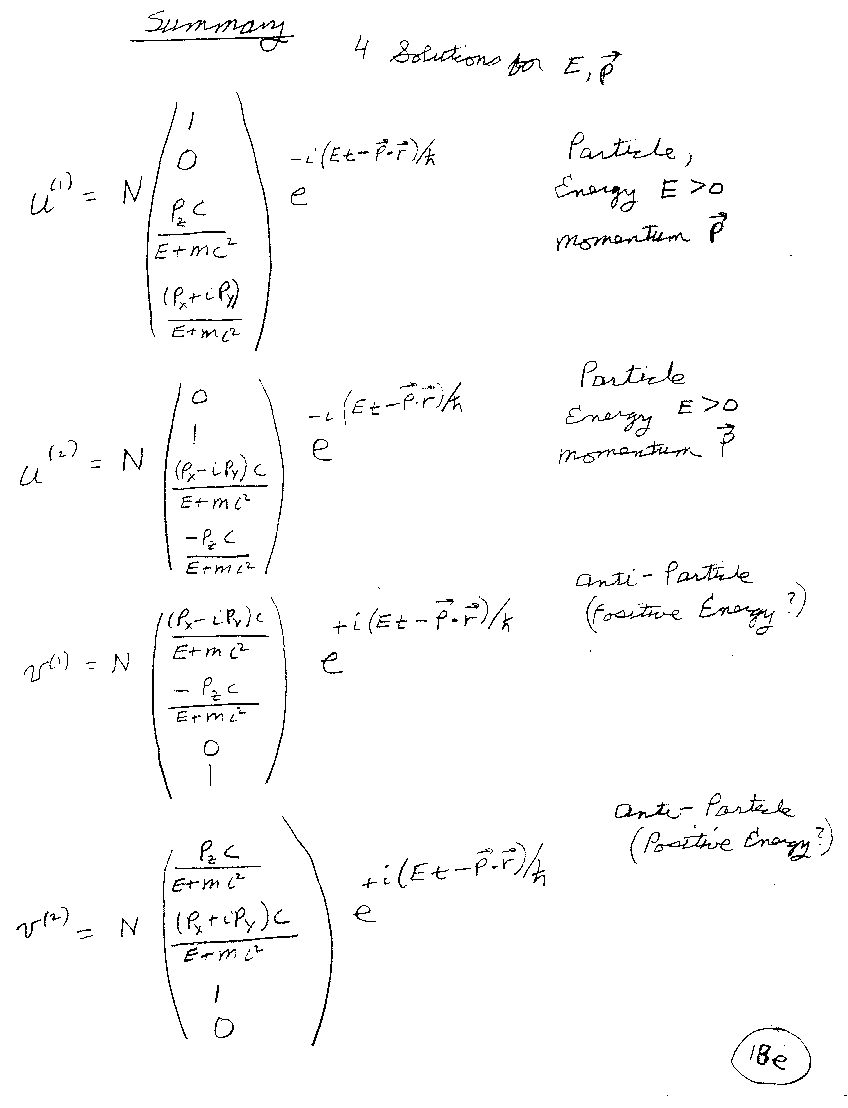 Summary
4 Solutions for E, p⃗
u⁽¹⁾ = N ( 1, 0, P_z c / (E+mc²), (P_x+iP_y) / (E+mc²) ) e^{-i(Et-p⃗·r⃗)/ħ}
Particle,
Energy E>0
momentum p⃗
u⁽²⁾ = N ( 0, 1, (P_x-iP_y)c / (E+mc²), -P_z c / (E+mc²) ) e^{-i(Et-p⃗·r⃗)/ħ}
Particle
Energy E>0
momentum p⃗
v⁽¹⁾ = N ( (P_x-iP_y)c / (E+mc²), -P_z c / (E+mc²), 0, 1 ) e^{+i(Et-p⃗·r⃗)/ħ}
Anti-Particle
(Positive Energy?)
v⁽²⁾ = N ( P_z c / (E+mc²), (P_x+iP_y)c / (E+mc²), 1, 0 ) e^{+i(Et-p⃗·r⃗)/ħ}
Anti-Particle
(Positive Energy?)
18e